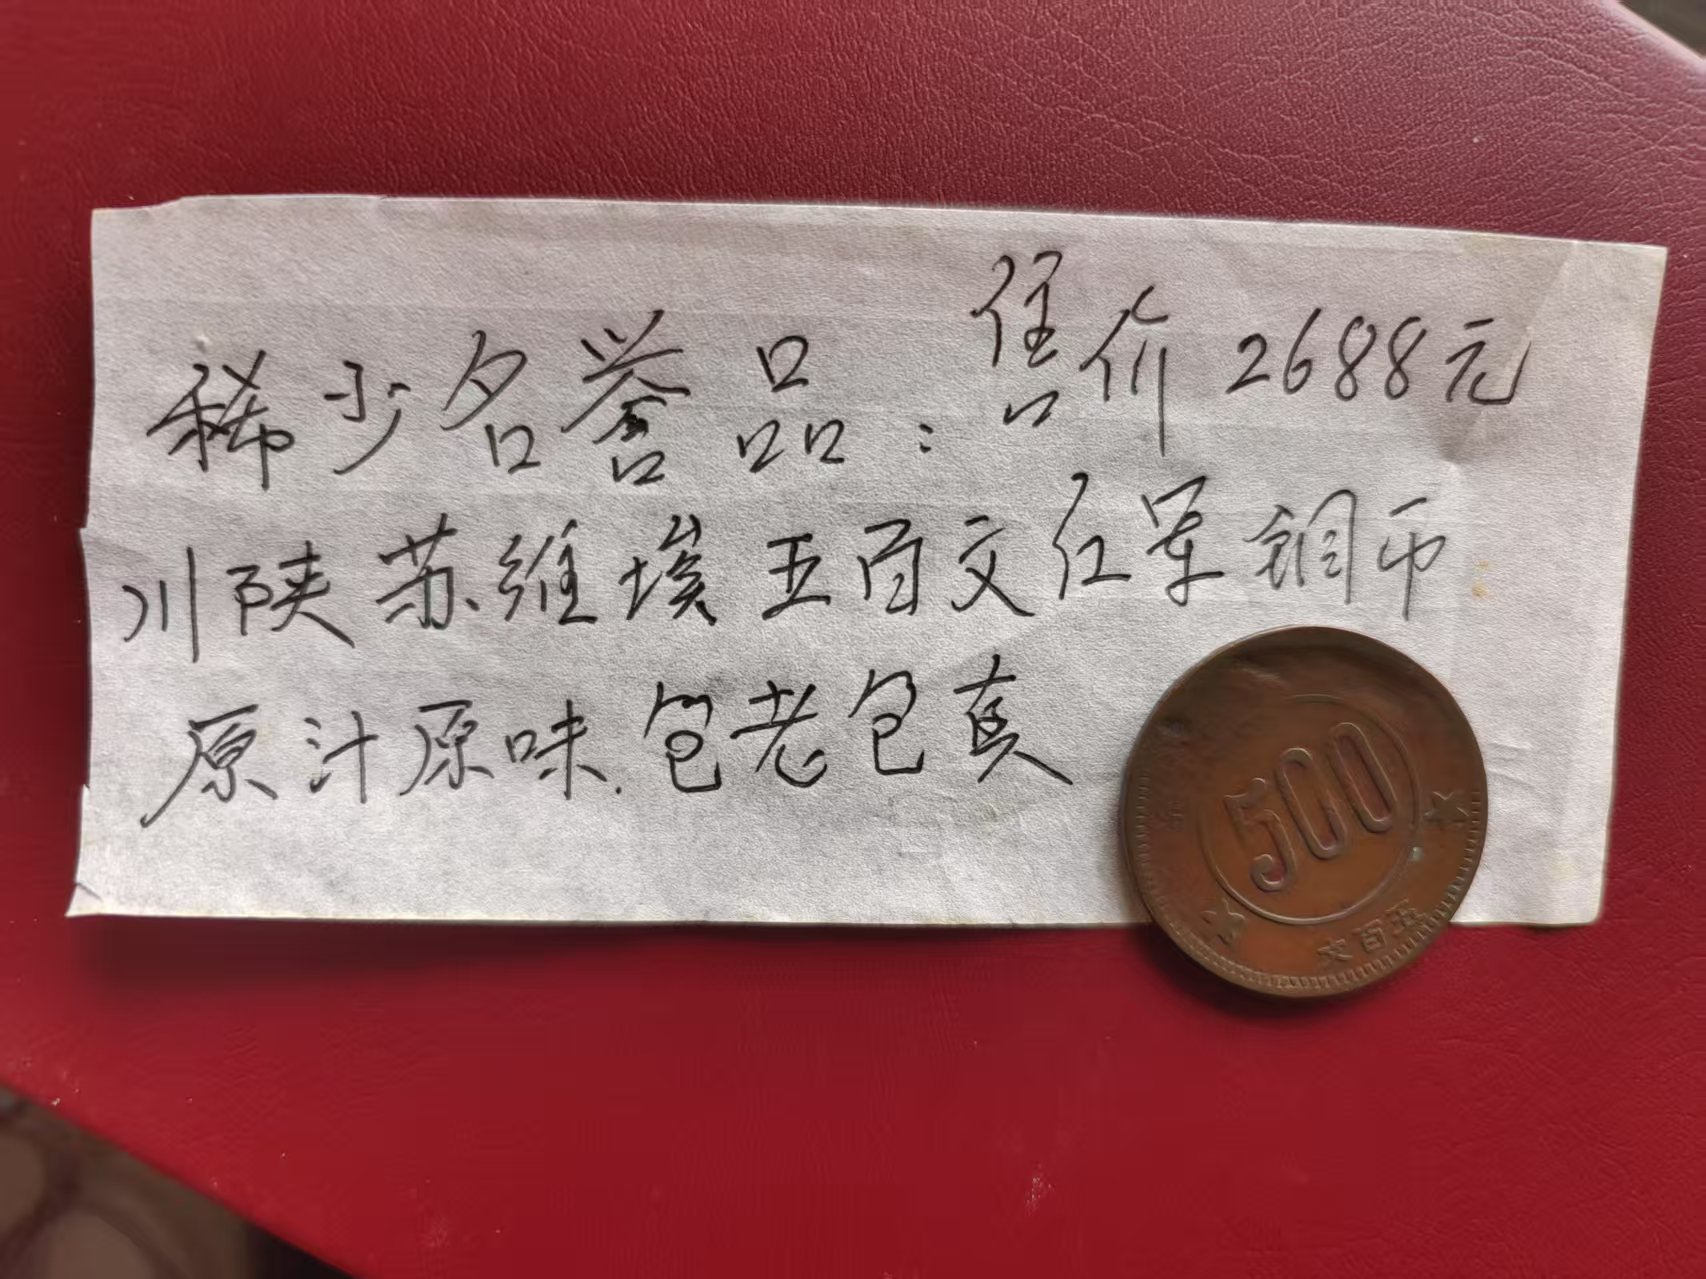 稀少名誉品：售价2688元
川陕苏维埃五百文红军铜币
原汁原味.包老包真
500
文百五